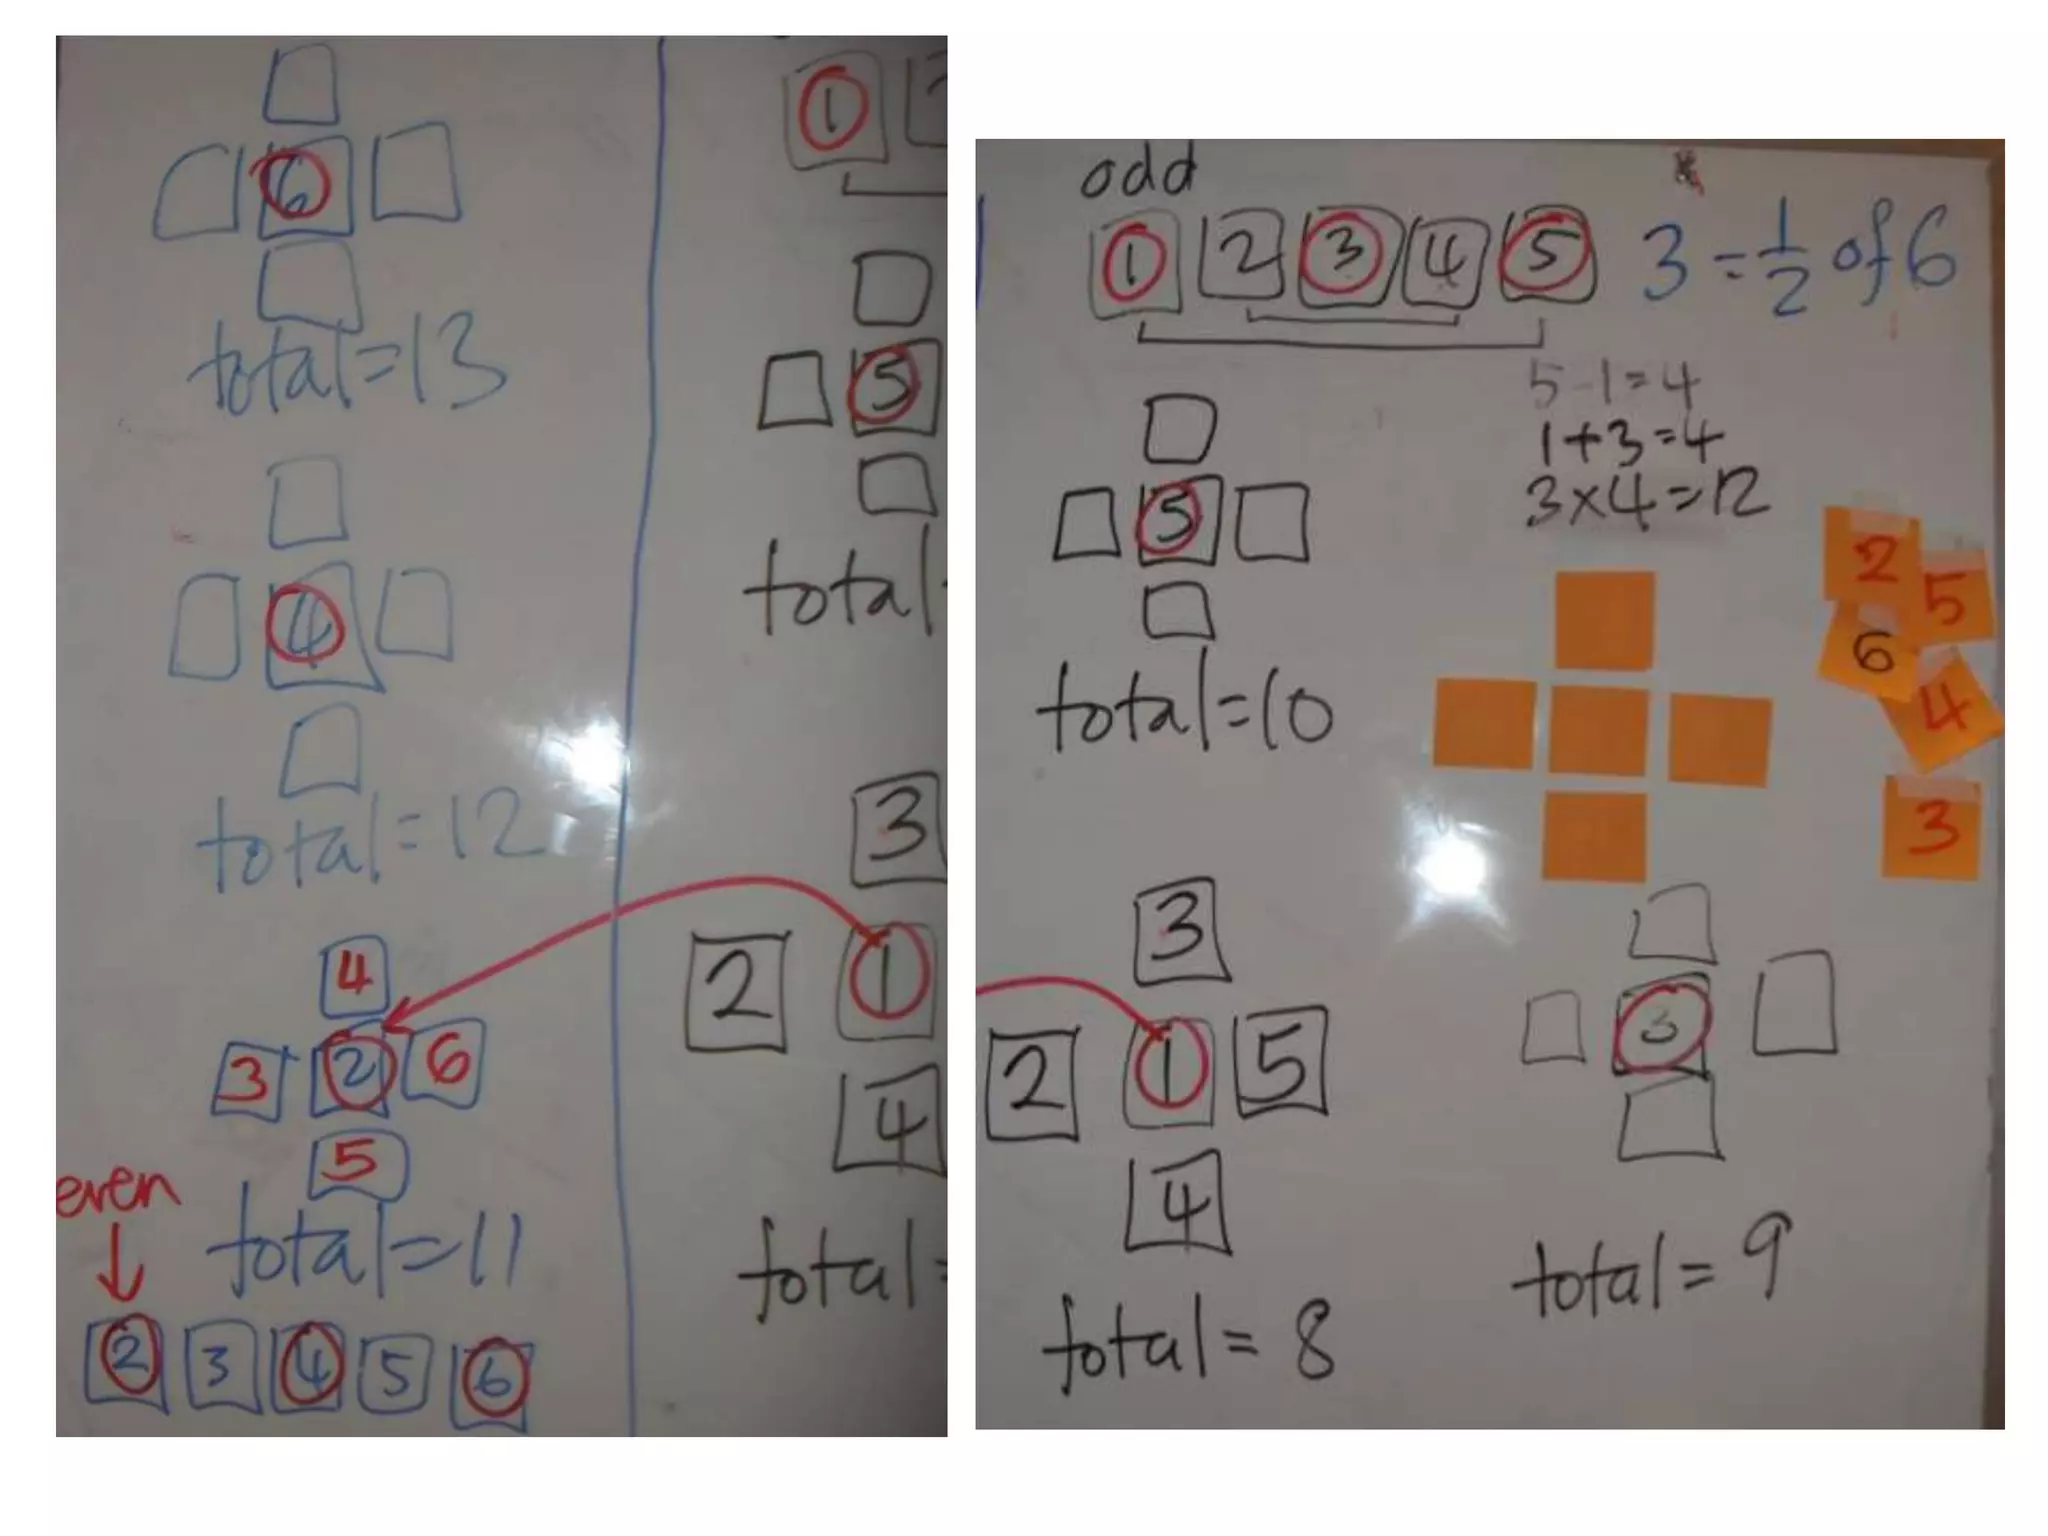 6
total=13
4
total=12
4
3 2 6
5
total=11
even
2 3 4 5 6
1
5
total
3
2 1
4
total=
odd
1 2 3 4 5
3 = 1/2 of 6
5-1=4
1+3=4
3×4=12
5
total=10
2
5
6
4
3
3
2 1 5
4
total = 8
3
total = 9